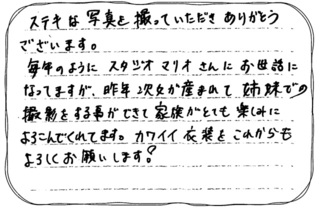 ステキな写真を撮っていただきありがとう
ございます。
毎年のようにスタジオマリオさんにお世話に
なってますが、昨年次女が産まれて姉妹での
撮影をする事ができて家族がとても楽しみに
よろこんでくれてます。カワイイ衣装をこれからも
よろしくお願いします!